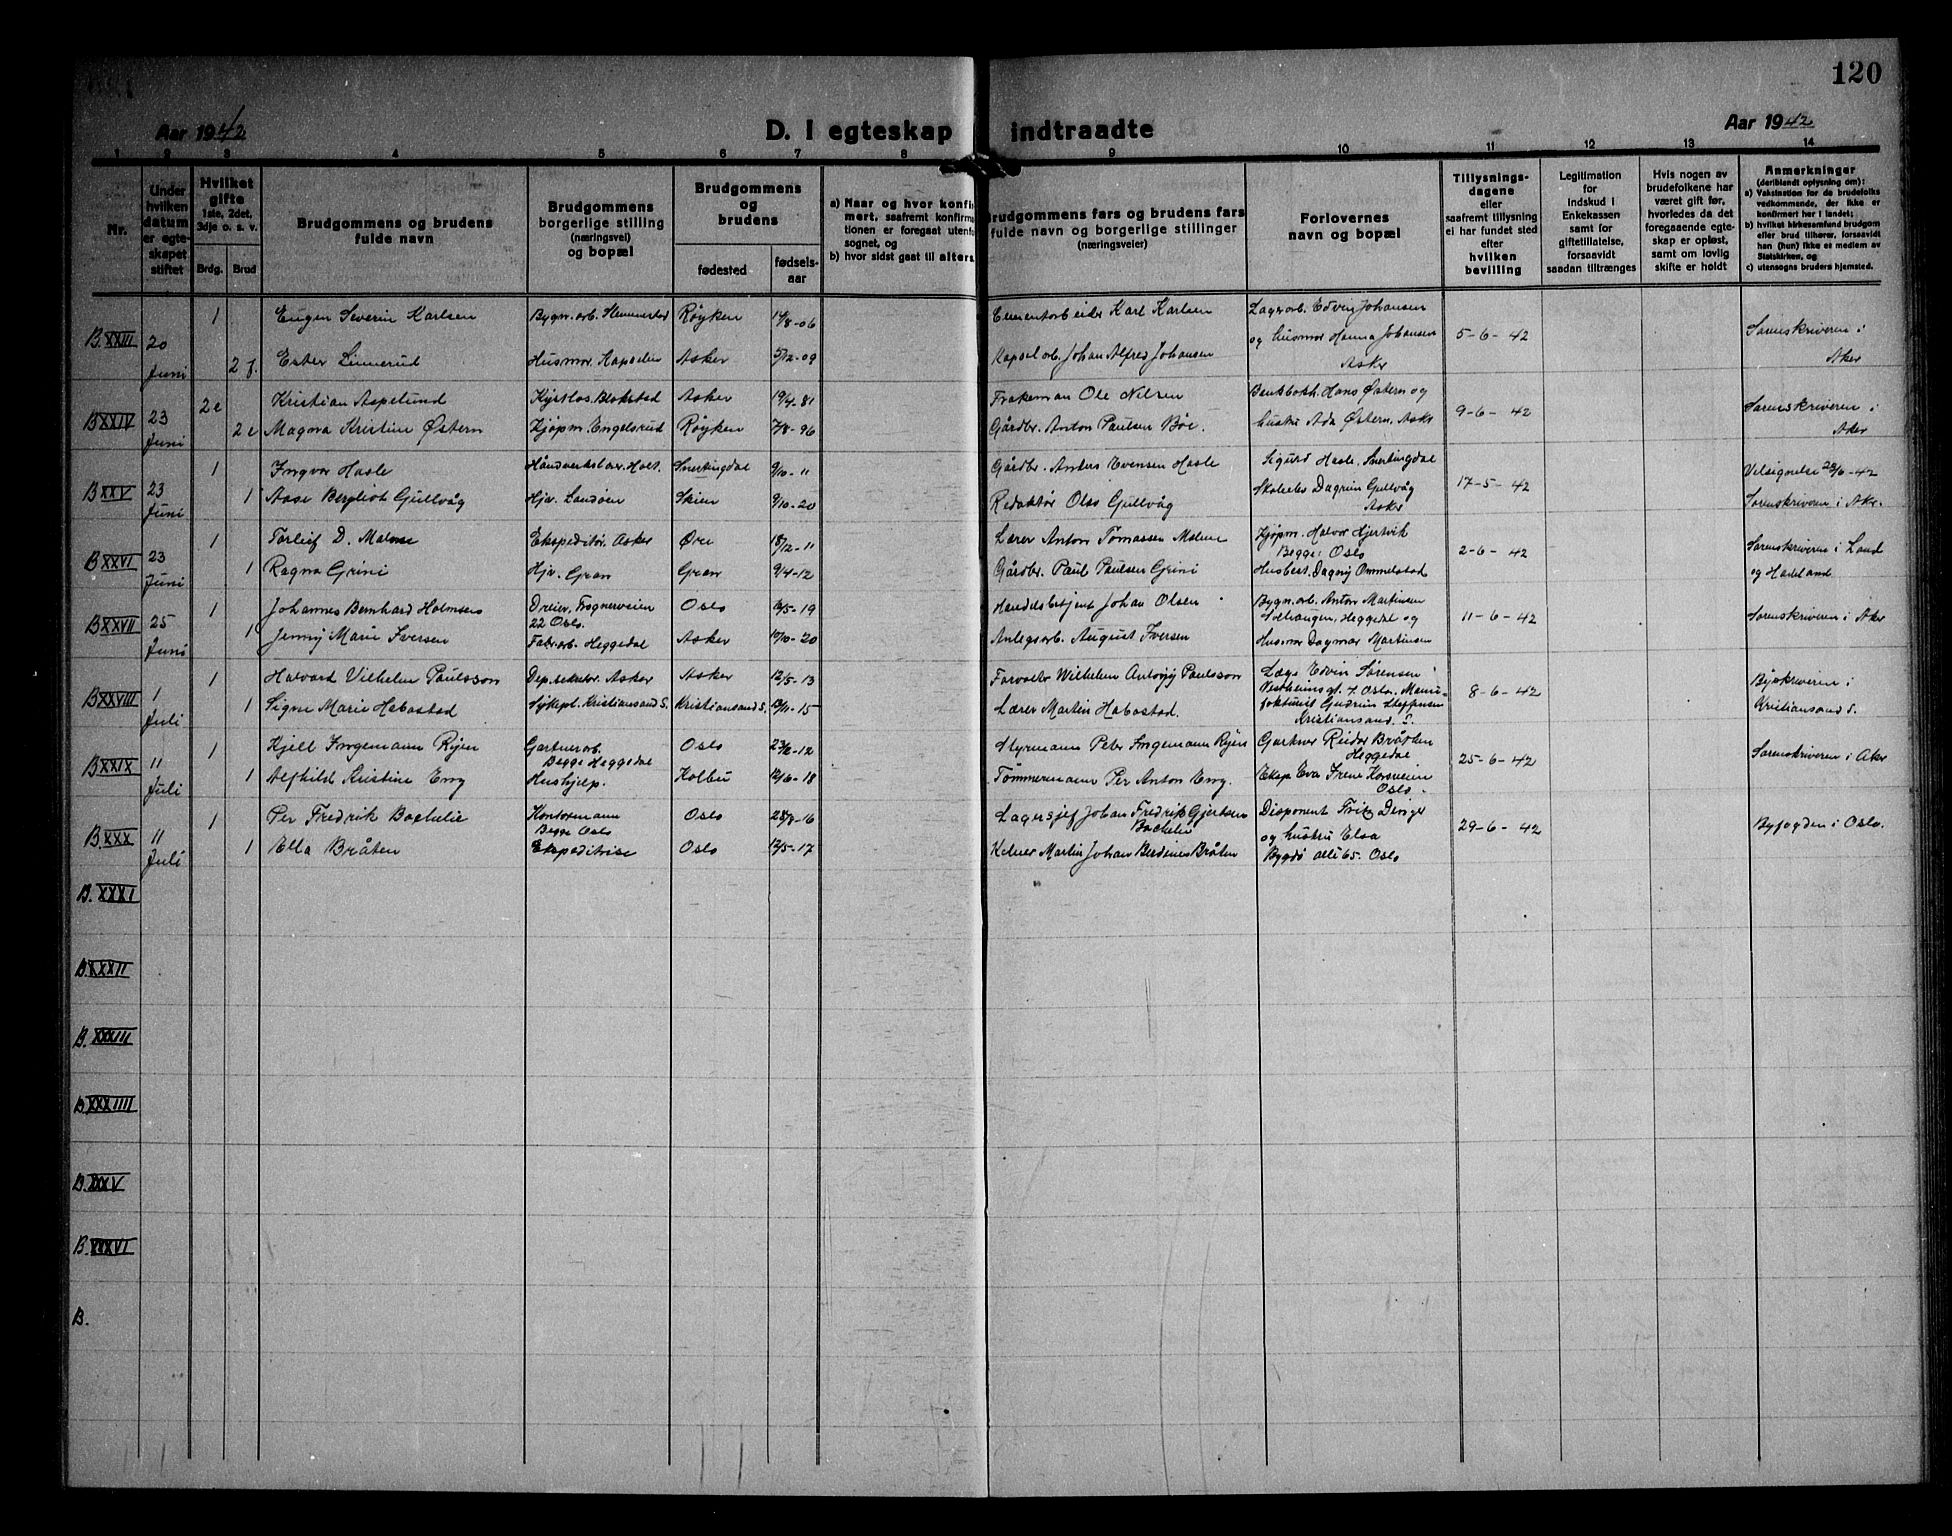 120
Aar 1942
D. I egteskap indtraadte
Aar 1942
1 2 3 4 5 6 7 8 9 10 11 12 13 14
Nr.
Under hvilken datum er egteskapet stiftet
Hvilket gifte 1ste, 2det, 3dje o. s. v.
Brdg. Brud
Brudgommens og brudens fulde navn
Brudgommens borgerlige stilling (næringsvei) og bopæl
Brudgommens og brudens
fødested
fødselsaar
a) Naar og hvor konfirmert, saafremt konfirmationen er foregaat utenfor sognet, og
b) hvor sidst gaat til alters.
Brudgommens fars og brudens fars fulde navn og borgerlige stillinger (næringsveier)
Forlovernes navn og bopæl
Tillysningsdagene eller saafremt tillysning ei har fundet sted efter hvilken bevilling
Legitimation for indskud i Enkekassen samt for giftetillalelse, forsaavidt saadan tiltrænges
Hvis nogen av brudefolkene har været gift før, hvorledes da det foregaaende egteskap er opløst, samt om lovlig skifte er holdt
Anmerkninger (deriblandt oplysning om):
a) Vaksination for de brudefolks vedkommende, der ikke er konfirmert her i landet;
b) hvilket kirkesamfund brudgom eller brud tilhører, forsaavidt han (hun) ikke et medlem av Statskirken, og
c) utensogns bruders hjemsted.
B. XXIII 20 Juni
1 Eugen Severin Karlsen Bygn. arb. Slemmestad Røyken 14/8-06 Cementarbeider Karl Karlsen Lagerarb. Edvin Johansen og husmor Hanna Johansen Asker 5-6-42 Sorenskriveren i Aker
2 f. Ester Linnerud Husmor, Kapselen Asker 5/12-09 Kapselarb. Johan Alfred Johansen
B. XXIV 23 Juni
2 e Kristian Aspelund Blakstad Asker 19/4-81 Ole Nilsen Hans Østern og hustru Ada Østern, Asker 9-6-42 Sorenskriveren i Aker
2 e Magna Kristine Østern Kjøpm. Engelsrud Røyken 7/8-96 Gårdbr. Anton Paulsen Bøe.
B. XXV 23 Juni
1 Ingvar Hasle Snertingdal 9/10-11 Gårdbr. Anders Evensen Hasle Sigurd Hasle, Snertingdal 17-5-42 Velsignelse 28/6-42
1 Aase Bergliot Gullvåg Hjv. Landøen Skien 9/10-20 Redaktør Olav Gullvåg Dagrun Gullvåg Asker Sorenskriveren i Aker.
B. XXVI 23 Juni
1 Torleif D. Malme Ekspeditør, Asker Øre 18/12-11 Lærer Anton Tomassen Malme Kjøpm. Halvor Hjertvik Begge: Oslo 2-6-42 Sorenskriveren i Land og Hadeland
1 Ragna Grini Hjv. Gran Gran 9/4-12 Gårdbr. Paul Paulsen Grini Husbest. Dagny Ommelstad
B. XXVII 25 Juni
1 Johannes Bernhard Holmsen Dreier, Frognerveien 22 Oslo. Oslo 12/5-19 Johan Olsen Bygn. arb. Anton Martinsen Solvangen, Heggedal og 11-6-42 Sorenskriveren i Aker
1 Jenny Marie Iversen Fabr. arb. Heggedal Asker 10/10-20 Anlegsarb. August Iversen Husmor Dagmar Martinsen
B. XXVIII 1 Juli
1 Halvard Vilhelm Paulsson Dep. sekretær. Asker Asker 12/5-13 Forvalter Wilhelm Paulsson Læge Edvin Sørensen Vestheimsgt. 7. Oslo. 8-6-42 Byskriveren i Kristiansand S.
1 Signe Marie Habostad Sykepl. Kristiansand S. Kristiansand S. 13/11-15 Lærer Martin Habostad. Gudrun Steffensen Kristiansand. S.
B. XXIX 11 Juli
1 Kjell Ingemann Ryen Gartnerarb. Begge Heggedal Oslo 23/2-12 Styrmann Peter Ingemann Ryen Gartner Reidar Bråten Heggedal 25-6-42 Sorenskriveren i Aker
1 Alfhild Kristine Eng Hushjelp. Kolbu 12/6-18 Tømmermann Per Anton Eng. Eksp. Eva Irene Korsveien Oslo.
B. XXX 11 Juli
1 Per Fredrik Bachelie Kontormann Begge Oslo Oslo 28/8-16 Lagersjef Johan Fredrik Gjertsen Bachelie Disponent Fritz Deriger og hustru Elsa Bygdø allé 65. Oslo 29-6-42 Byfogden i Oslo.
1 Ella Bråten Ekspeditrise Oslo 12/5-17 Kelner Martin Johan Berdines Bråten
B. XXXI
B. XXXII
B. XXXIII
B. XXXIIII
B. XXXV
B. XXXVI
B.